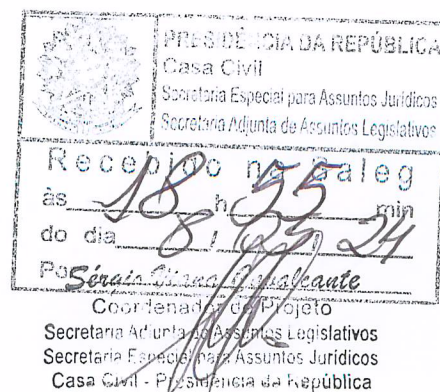 PRESIDÊNCIA DA REPÚBLICA
Casa Civil
Secretaria Especial para Assuntos Jurídicos
Secretaria Adjunta de Assuntos Legislativos
Recebido na Saleg
às 18 h 55 min
do dia 8 / / 24
Por Sérgio Cavalcante
Coordenador de Projeto
Secretaria Adjunta de Assuntos Legislativos
Secretaria Especial para Assuntos Jurídicos
Casa Civil - Presidência da República